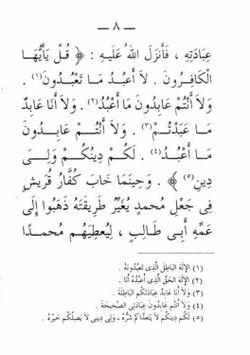 - ٨ -
عِبَادَتِهِ ، فَأَنْزَلَ اللهُ عَلَيهِ : ﴿ قُلْ يَأَيُّهَا
الْكَافِرُونَ . لاَ أَعْبُدُ مَا تَعْبُدُونَ(١) .
وَلاَ أَنْتُمْ عَابِدُونَ مَا أَعْبُدُ(٢) . وَلاَ أَنَا عَابِدٌ
مَا عَبَدْتُمْ(٣) . وَلاَ أَنْتُمْ عَابِدُونَ
مَا أَعْبُدُ(٤) . لَكُمْ دِينُكُمْ وَلِيَ
دِينِ(٥) ﴾ . وَحِينَمَا خَابَ كُفَّارُ قُرَيشٍ
فِى جَعْلِ مُحمدٍ يُغَيِّرُ طَرِيقَتَهُ ذَهَبُوا إِلَى
عَمِّهِ أَبِى طَالِبٍ ، لِيُعطِيَهُم مُحمدًا
(١) الإِلَهَ الْبَاطِلَ الَّذِى تَعْبُدُونَهُ .
(٢) الإِلَهَ الْحَقَّ الَّذِى أَعْبُدُهُ أَنَا
(٣) وَلاَ أَنَا عَابِدٌ عِبَادَتَكُمُ الْبَاطِلَةَ .
(٤) وَلاَ أَنْتُمْ عَابِدُونَ عِبَادَتِى الصَّحِيحَةَ .
(٥) لَكُمْ دِينُكُمْ لاَ يَتَعَدَّاكُمْ شَرُّهُ ، وَلِى دِينِى لاَ يَصِلُكُمْ خَيرُهُ .